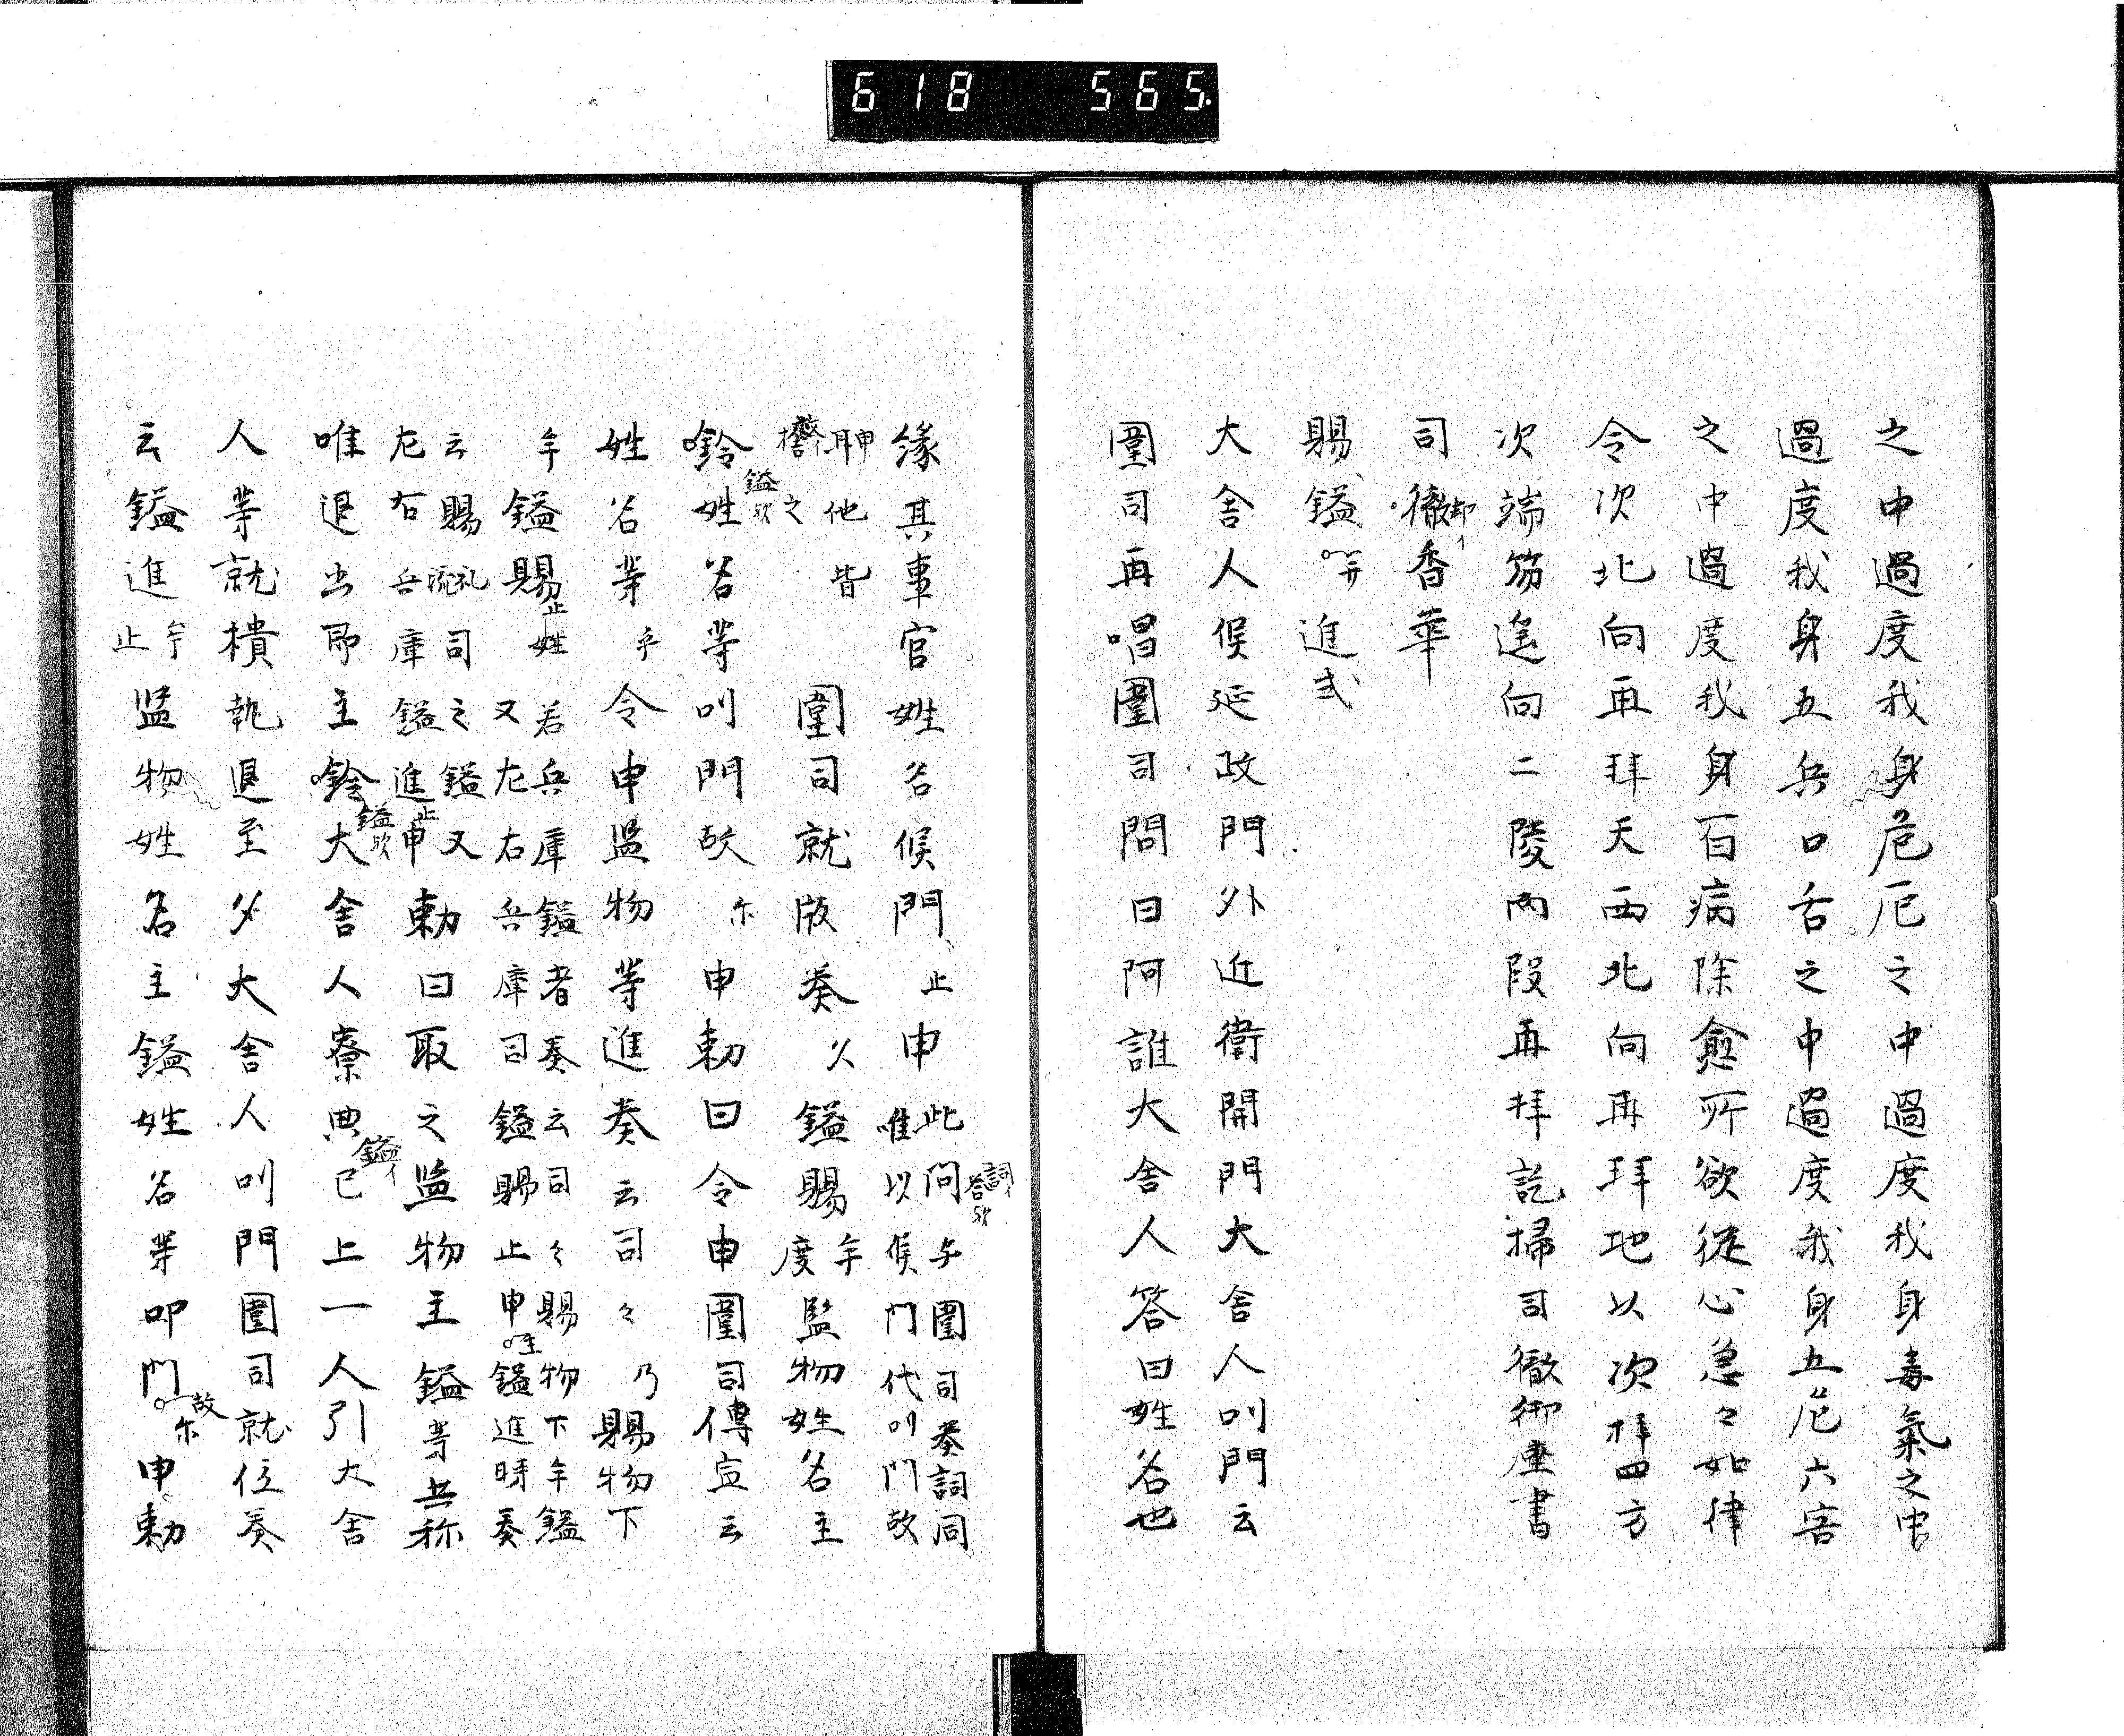 618 565.
之中過度我身危厄之中過度我身毒氣之中
過度我身五兵口舌之中過度我身五厄六害
之中過度我身百病除愈所欲從心急々如律
令次北向再拜天西北向再拜地以次拜四方
次端笏遥向二陵両段再拝訖掃司徹御座書
司徹却イ香華
賜鎰并進式
大舎人候延政門外近衛開門大舎人叫門云
圍司再唱圍司問曰阿誰大舎人答曰姓名也
縁其事官姓名候門止申此問与圍司奏詞同
詞イ答欤
唯以候門代叫門故
申耳他皆
之
圍司就版奏久鎰賜牟度監物姓名主
鈴鎰欤姓名等叫門故尓申勅曰令申圍司傳宣云
姓名等乎令申监物等進奏云司々乃賜物下
牟鎰賜止姓若兵庫鎰者奏云司々賜物下牟鎰
又左右兵庫司鎰賜止申唯鎰進時奏
云賜流礼司之鎰又
左右兵庫鎰進止申勅曰取之监物主鎰等共称
唯退出即主鈴鎰欤大舎人寮典鎰イ已上一人引大舎
人等就樻執退至夕大舎人叫門圍司就位奏
云鎰進牟止监物姓名主鎰姓名等叩門故尓申勅